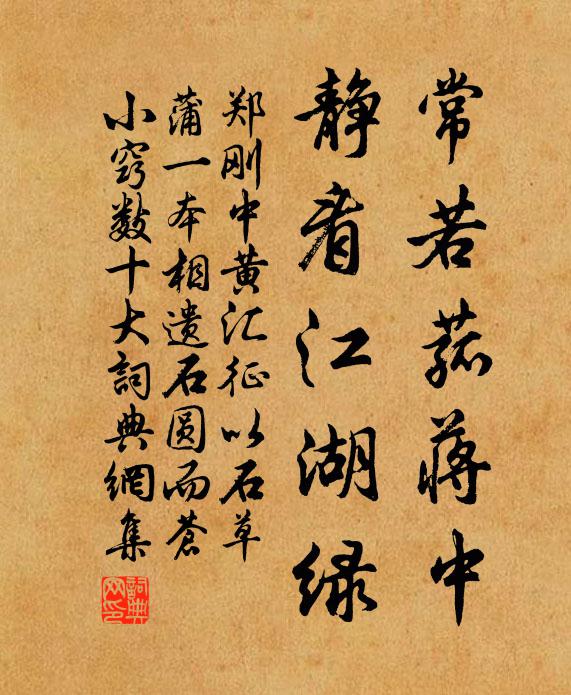 常若菰蒋中
静看江湖绿
郑刚中黄汇征以石草
蒲一本相遗石圆而苍
小窍数十大词典網集
詞典网印